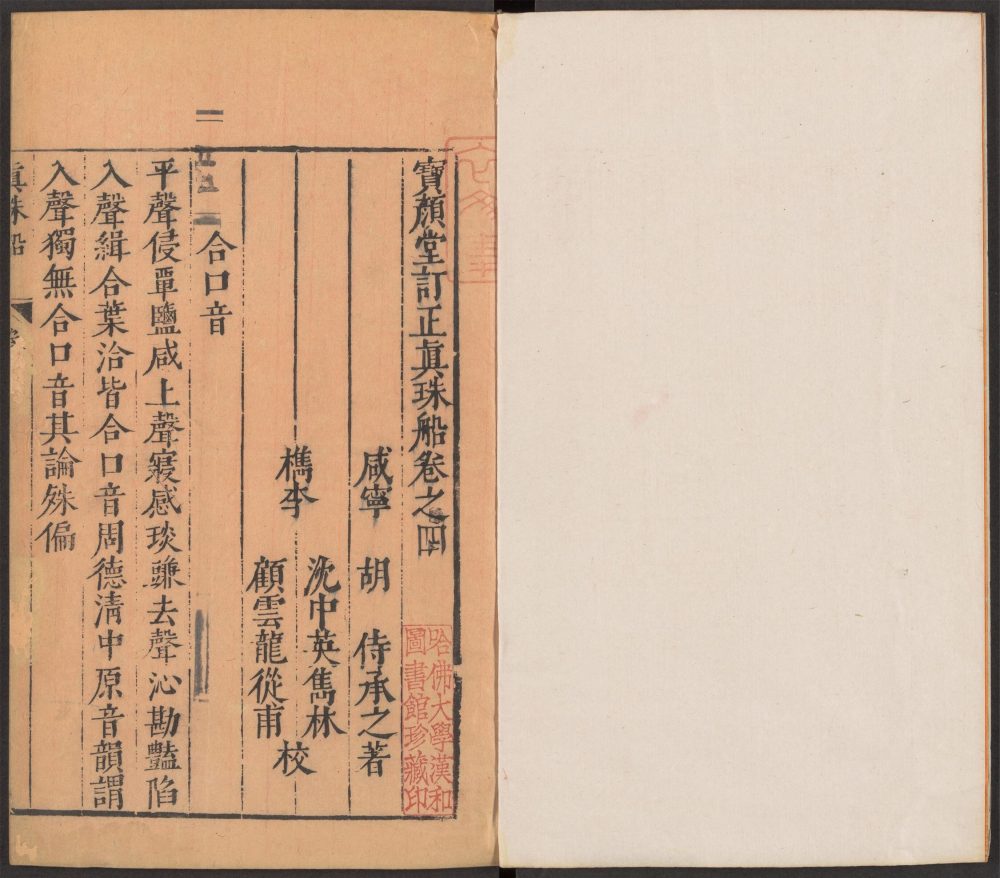 寶顏堂訂正眞珠船卷之四
咸寧　胡　侍承之著
檇李　沈中英雋林
顧雲龍從甫　校
合口音
平聲侵覃鹽咸上聲寑感琰豏去聲沁勘豔陷
入聲緝合葉洽皆合口音周德清中原音韻謂
入聲獨無合口音其論殊偏
眞珠船
哈佛大學漢和
圖書館珍藏印